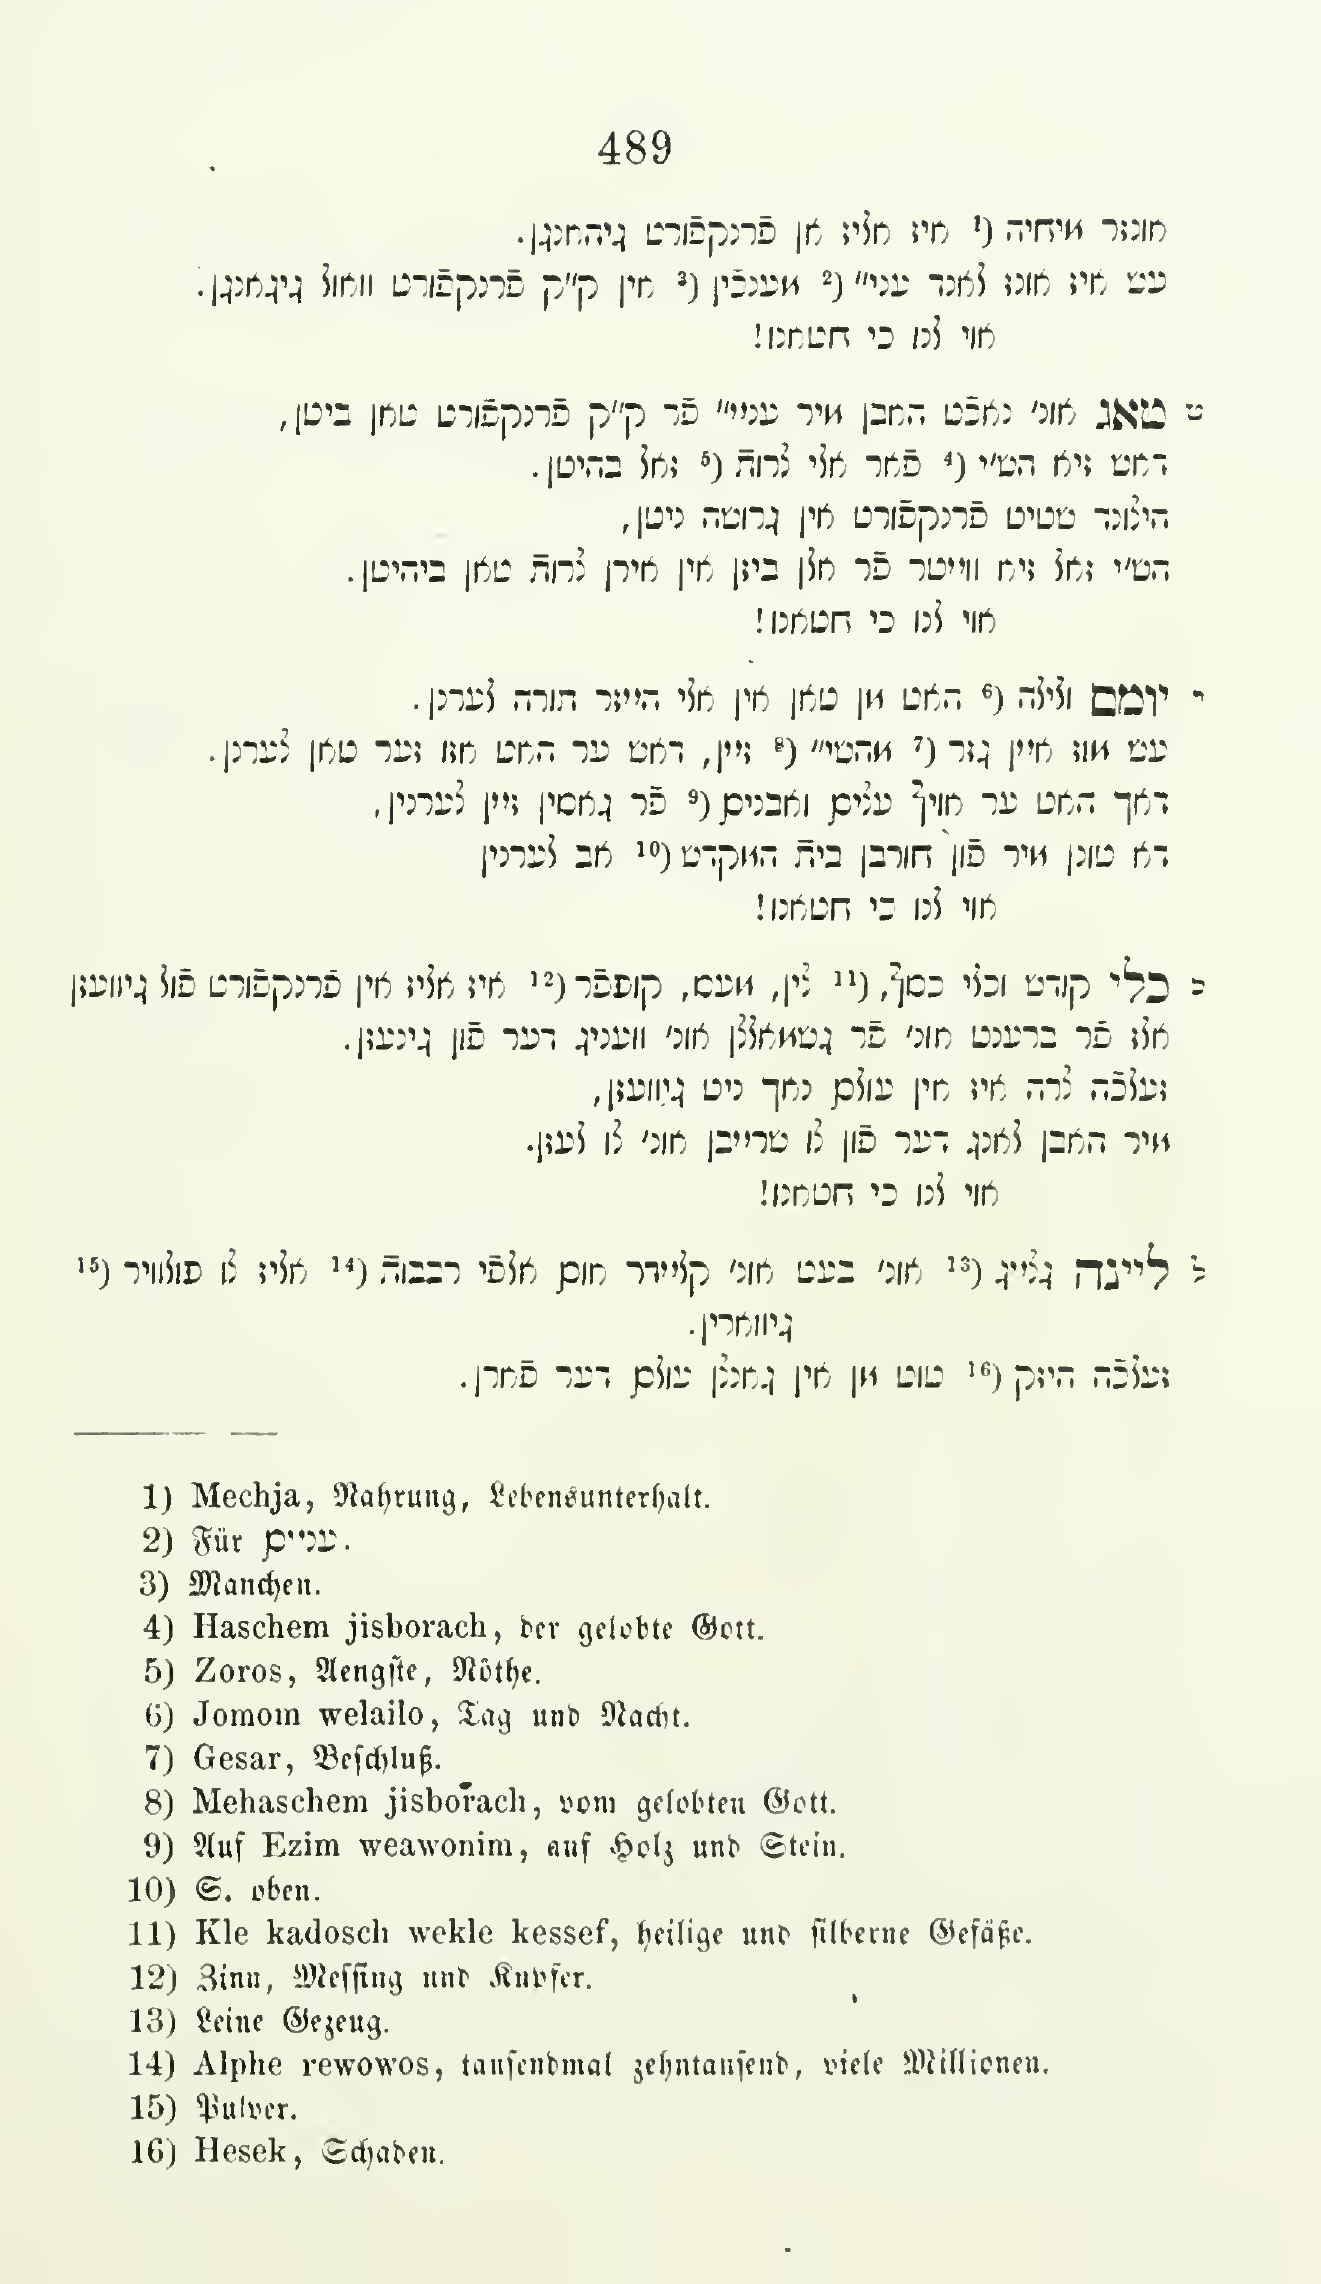 489
אונזר מיחיה (1 איז אליז אן פֿרנקפֿורט גיהאנגן.
עש איז אונז לאנד עני״ (2 מענכֿין (3 אין ק״ק פֿרנקפֿורט וואול גיגאנגן.
אוי לנו כי חטאנו!
ט טאג אונ׳ נאכֿט האבן מיר עניי״ פֿר ק״ק פֿרנקפֿורט טאן ביטן,
דאש זיא הש״י (4 פֿאר אלי צרות (5 זאל בהיטן.
הילונד שטיט פֿרנקפֿורט אין גרושה ניטן,
הש״י זאל זיא ווייטר פֿר אלן ביזן אין אירן צרות טאן ביהיטן.
אוי לנו כי חטאנו!
י יומם ולילה (6 האט מן טאן אין אלי הייזר תורה לערנן.
עש מוז איין גזר (7 מהשי״ (8 זיין, דאש ער האט אזו זער טאן צערנן.
דאך האט ער אויף עצים ואבנים (9 פֿר גאסין זיין צערנין,
דא טונן מיר פֿון חורבן בית המקדש (10 אב לערנין
אוי לנו כי חטאנו!
כ כלי קודש וכלי כסף, (11 צין, מעס, קופפֿר (12 איז אליז אין פֿרנקפֿורט פֿול גיוועזן
אלז פֿר ברענט אונ׳ פֿר גשמאלצן אונ׳ וועניג דער פֿון גינעזן.
זעלכֿה צרה איז אין עולם נאך ניט גיוועזן,
מיר האבן לאנג דער פֿון צו שרייבן אונ׳ צו לעזן.
אוי לנו כי חטאנו!
ל ליינה גצייג (13 אונ׳ בעט אונ׳ קליידר אום אלפֿי רבבות (14 אליז צו פולוויר (15
גיווארין.
זעלכֿה היזק (16 טוט מן אין גאנצן עולם דער פֿארן.
1) Mechja, Nahrung, Lebensunterhalt.
2) Für עניים.
3) Manchen.
4) Haschem jisborach, der gelobte Gott.
5) Zoros, Aengste, Nöthe.
6) Jomom welailo, Tag und Nacht.
7) Gesar, Beschluß.
8) Mehaschem jisborach, vom gelobten Gott.
9) Auf Ezim weawonim, auf Holz und Stein.
10) S. oben.
11) Kle kadosch wekle kessef, heilige und silberne Gefäße.
12) Zinn, Messing und Kupfer.
13) Leine Gezeug.
14) Alphe rewowos, tausendmal zehntausend, viele Millionen.
15) Pulver.
16) Hesek, Schaden.